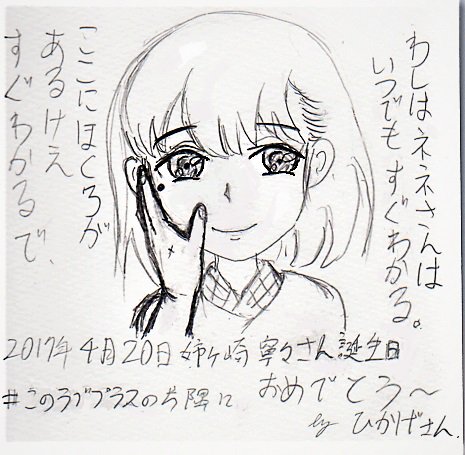 わしはネネさんは
いつでもすぐわかる。
ここにほくろが
あるけえ
すぐわかるで、
2017年4月20日姉ヶ崎寧々さん誕生日
おめでとう〜
#このラブプラスの片隅に
by ひかげさん.